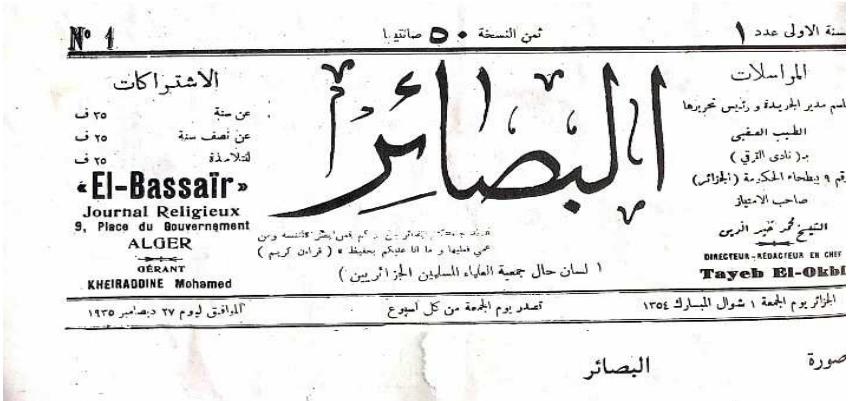 سنة الاولى عدد ١
ثمن النسخة ٥٠ صانتيا
Nº 1
المراسلات
باسم مدير الجريدة و رئيس تحريرها
الطيب العقبي
بـ(نادى الترقي)
رقم ٩ ببطحاء الحكومة (الجزائر)
صاحب الامتياز
الشيخ محمد خير الدين
DIRECTEUR-RÉDACTEUR EN CHEF
Tayeb El-Okbi
البصائر
قد جاءكم بصائر من ربكم فمن ابصر فلنفسه ومن
عمي فعليها و ما انا عليكم بحفيظ » ( قرآن كريم )
( لسان حال جمعية العلماء المسلمين الجزائريين )
الاشتراكات
عن سنة ٣٥ ف
عن نصف سنة ٢٥ ف
لتلامذة ٢٥ ف
«El-Bassaïr»
Journal Religieux
9, Place du Gouvernement
ALGER
GÉRANT
KHEIRADDINE Mohamed
الجزائر يوم الجمعة ١ شوال المبارك ١٣٥٤
تصدر يوم الجمعة من كل اسبوع
الموافق ليوم ٢٧ ديصامبر ١٩٣٥
صورة
البصائر